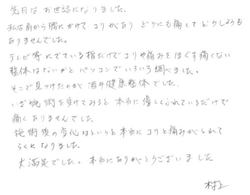 先日はお世話になりました。
私は肩から腕にかけてコリがありどうにも痛くてどうしようも
ありませんでした。
テレビ等でている指だけでコリや痛みをほぐす痛くない
整体はないかとパソコンでいろいろ調べました。
そこで見つけたのが酒井健康整体でした。
いざ施術を受けてみると本当に優しくふれているだけで
痛くありませんでした。
施術後の変化はというと本当にコリと痛みがとられて
らくになりました。
大満足でした。本当にありがとうございました
村上